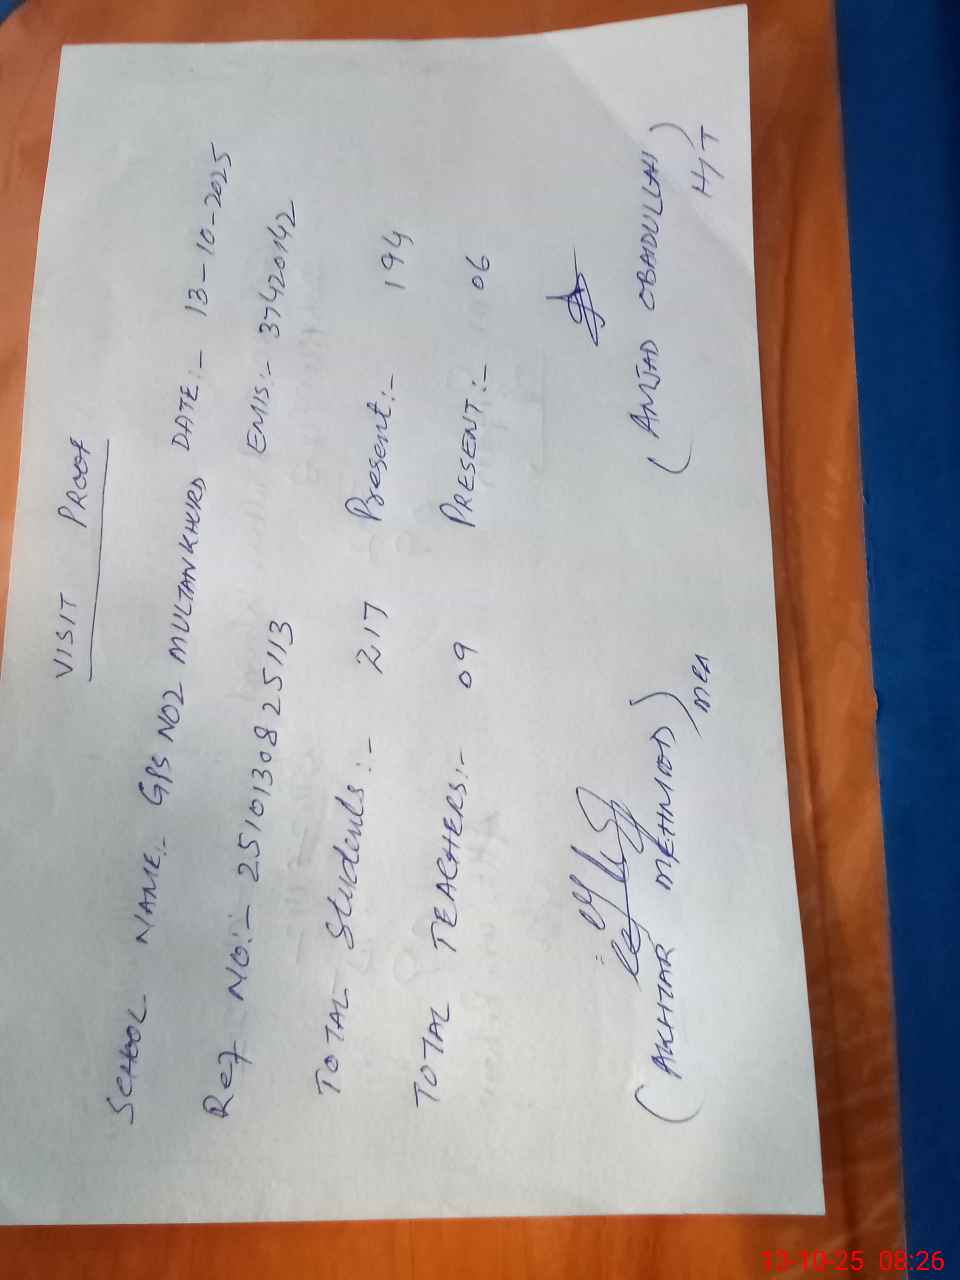 VISIT PROOF
SCHOOL NAME:- GPS NO2 MULTANKHURD DATE:- 13-10-2025
Ref NO:- 2510130825113 EMIS:- 37420142
TOTAL Students:- 217 Present:- 194
TOTAL TEACHERS:- 09 PRESENT:- 06
(AKHTAR MEHMOOD) (AMJAD OBAIDULLAH)
MEA H/T
13-10-25 08:26